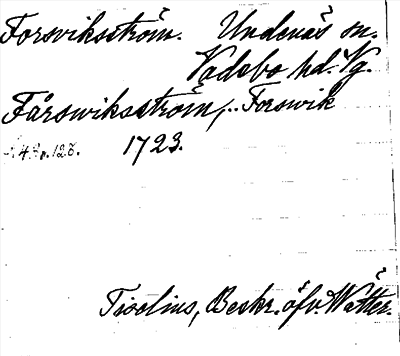 Forsviksström. Undenäs sn.
Vadsbo hd. Vg.
Fårswiksström, .. Forswik
s. 4. 1723.
Tiselius, Beskr. öfv. Wätter.